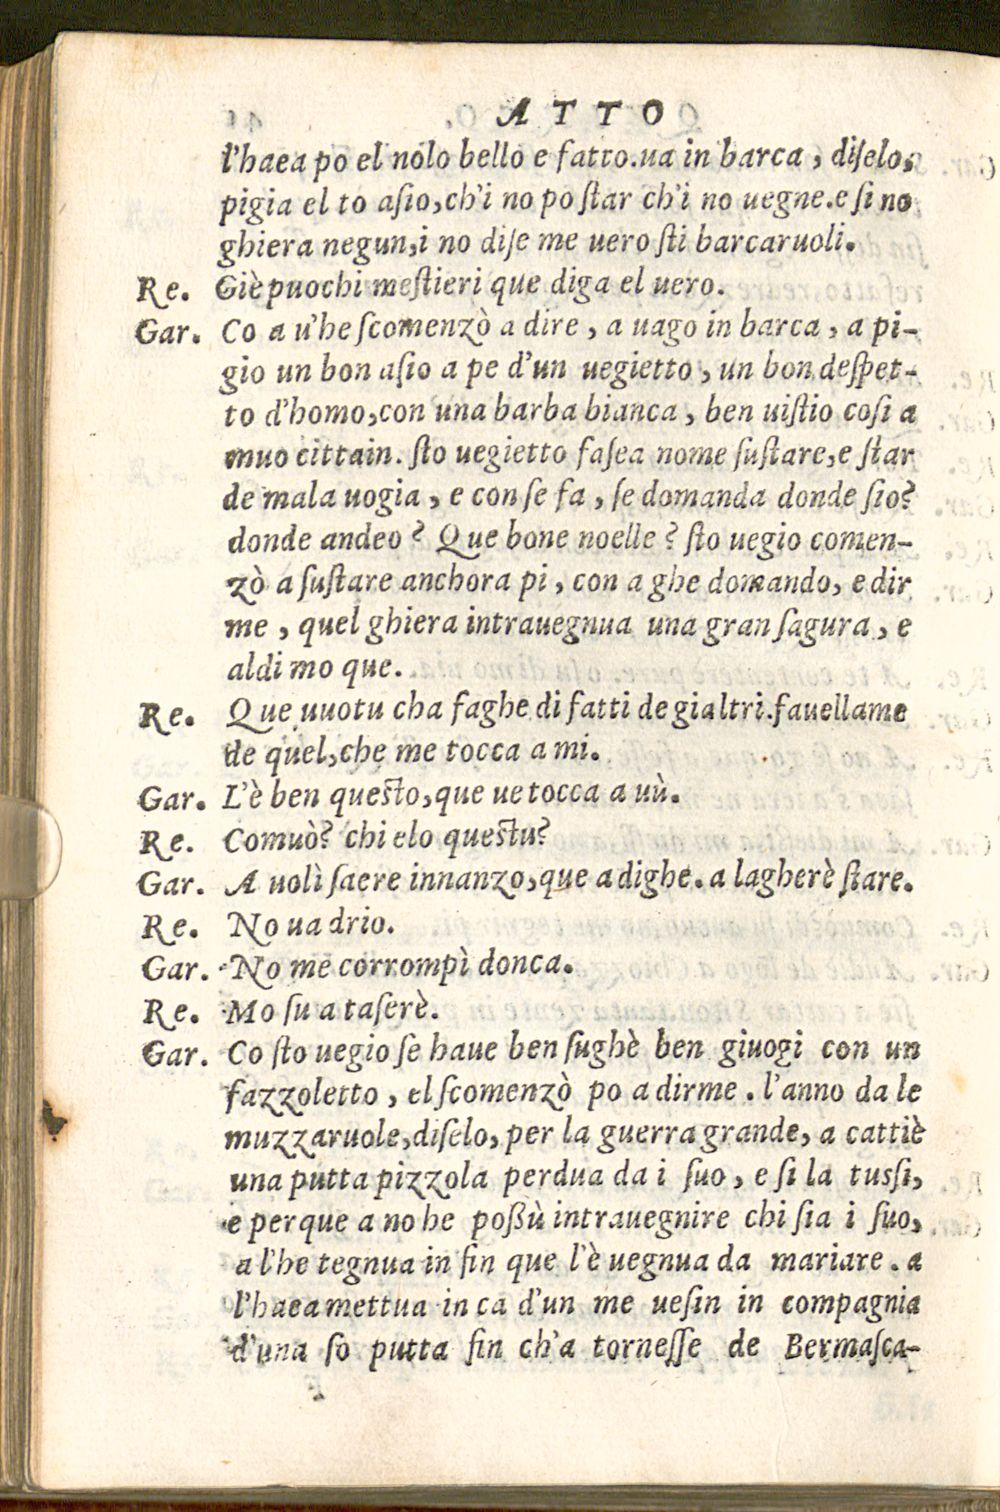 ATTO
l'haea po el nolo bello e fatto.ua in barca, diſelo,
pigia el to aſio,ch'i no po ſtar ch'i no uegne.e ſi no
ghiera negun,i no diſe me uero ſti barcaruoli.
Re. Giè puochi meſtieri que diga el uero.
Gar. Co a u'he ſcomenzò a dire, a uago in barca, a pi-
gio un bon aſio a pe d'un uegietto, un bon deſpet-
to d'homo,con una barba bianca, ben uiſtio coſi a
muo cittain. ſto uegietto faſea nome ſuſtare,e ſtar
de mala uogia, e con ſe fa, ſe domanda donde ſio?
donde andeo? Que bone noelle? ſto uegio comen-
zò a ſuſtare anchora pi, con a ghe domando, e dir
me, quel ghiera intrauegnua una gran ſagura, e
aldi mo que.
Re. Que uuotu cha faghe di fatti de gialtri.fauellame
de quel,che me tocca a mi.
Gar. L'è ben queſto,que ue tocca a uù.
Re. Comuò? chi elo queſtu?
Gar. A uolì ſaere innanzo,que a dighe. a lagherè ſtare.
Re. No ua drio.
Gar. No me corrompì donca.
Re. Mo ſu a taſerè.
Gar. Co ſto uegio ſe haue ben ſughè ben giuogi con un
fazzoletto, el ſcomenzò po a dirme. l'anno da le
muzzaruole,diſelo, per la guerra grande, a cattiè
una putta pizzola perdua da i ſuo, e ſi la tuſſi,
e perque a no he poßù intrauegnire chi ſia i ſuo,
a l'he tegnua in fin que l'è uegnua da mariare. a
l'haea mettua in ca d'un me ueſin in compagnia
d'una ſo putta fin ch'a torneſſe de Bermaſca-